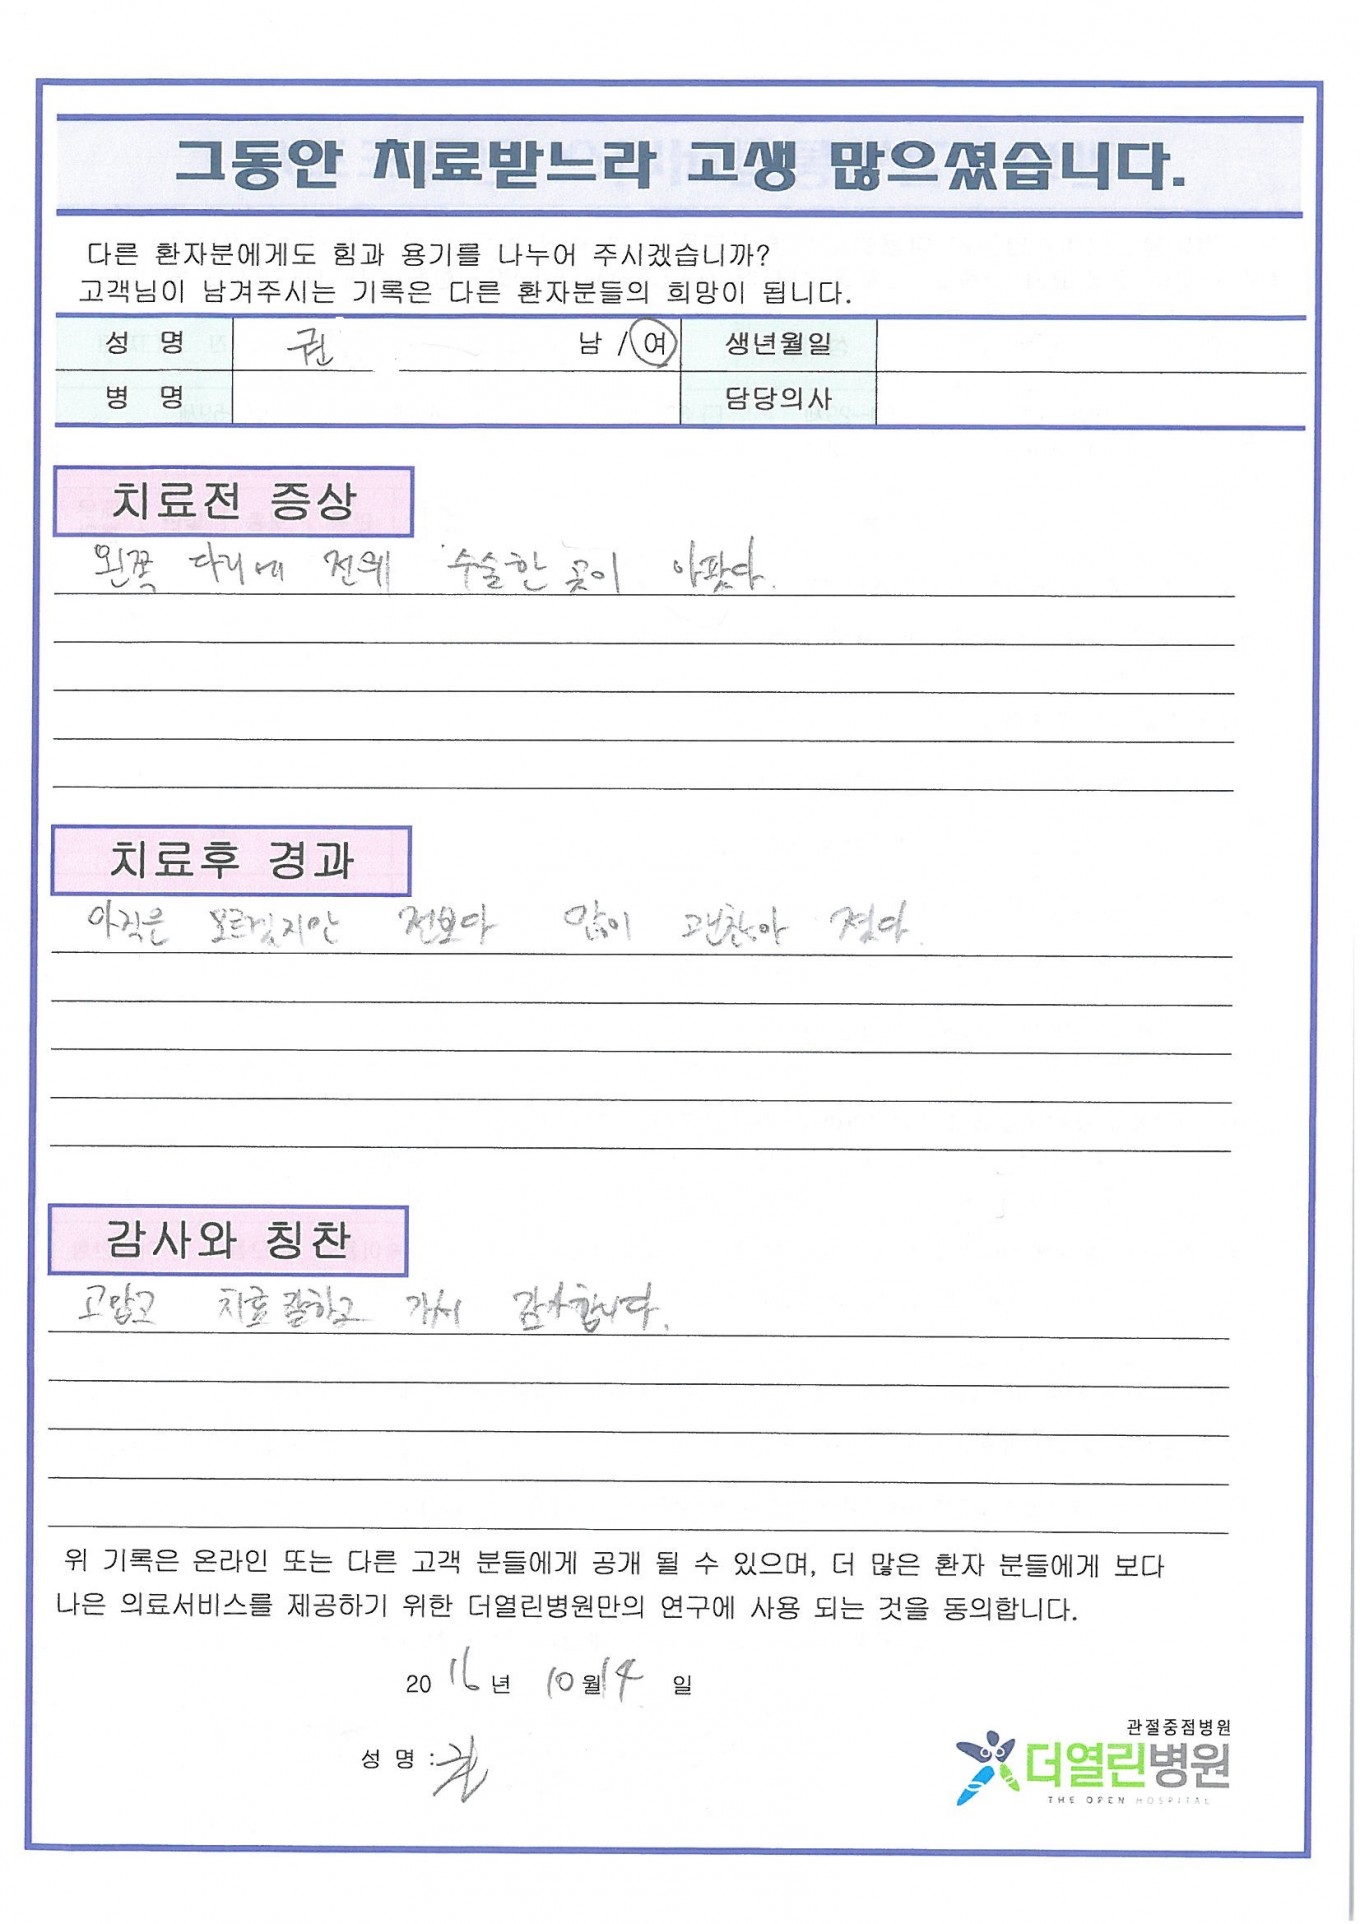 그동안 치료받느라 고생 많으셨습니다.
다른 환자분에게도 힘과 용기를 나누어 주시겠습니까?
고객님이 남겨주시는 기록은 다른 환자분들의 희망이 됩니다.
성 명 권 남 / 여 생년월일
병 명 담당의사
치료전 증상
왼쪽 다리에 전에 수술한 곳이 아팠다.
치료후 경과
아직은 모르겠지만 전보다 많이 괜찮아 졌다.
감사와 칭찬
고맙고 치료 잘하고 가서 감사합니다.
위 기록은 온라인 또는 다른 고객 분들에게 공개 될 수 있으며, 더 많은 환자 분들에게 보다
나은 의료서비스를 제공하기 위한 더열린병원만의 연구에 사용 되는 것을 동의합니다.
2016년 10월 14일
성 명 : 권
관절중점병원
더열린병원
THE OPEN HOSPITAL